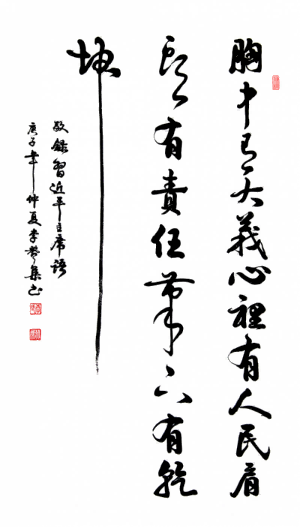 胸中有大義心裡有人民肩
頭有責任筆下有乾
坤
敬錄習近平主席語
庚子年仲夏李集书